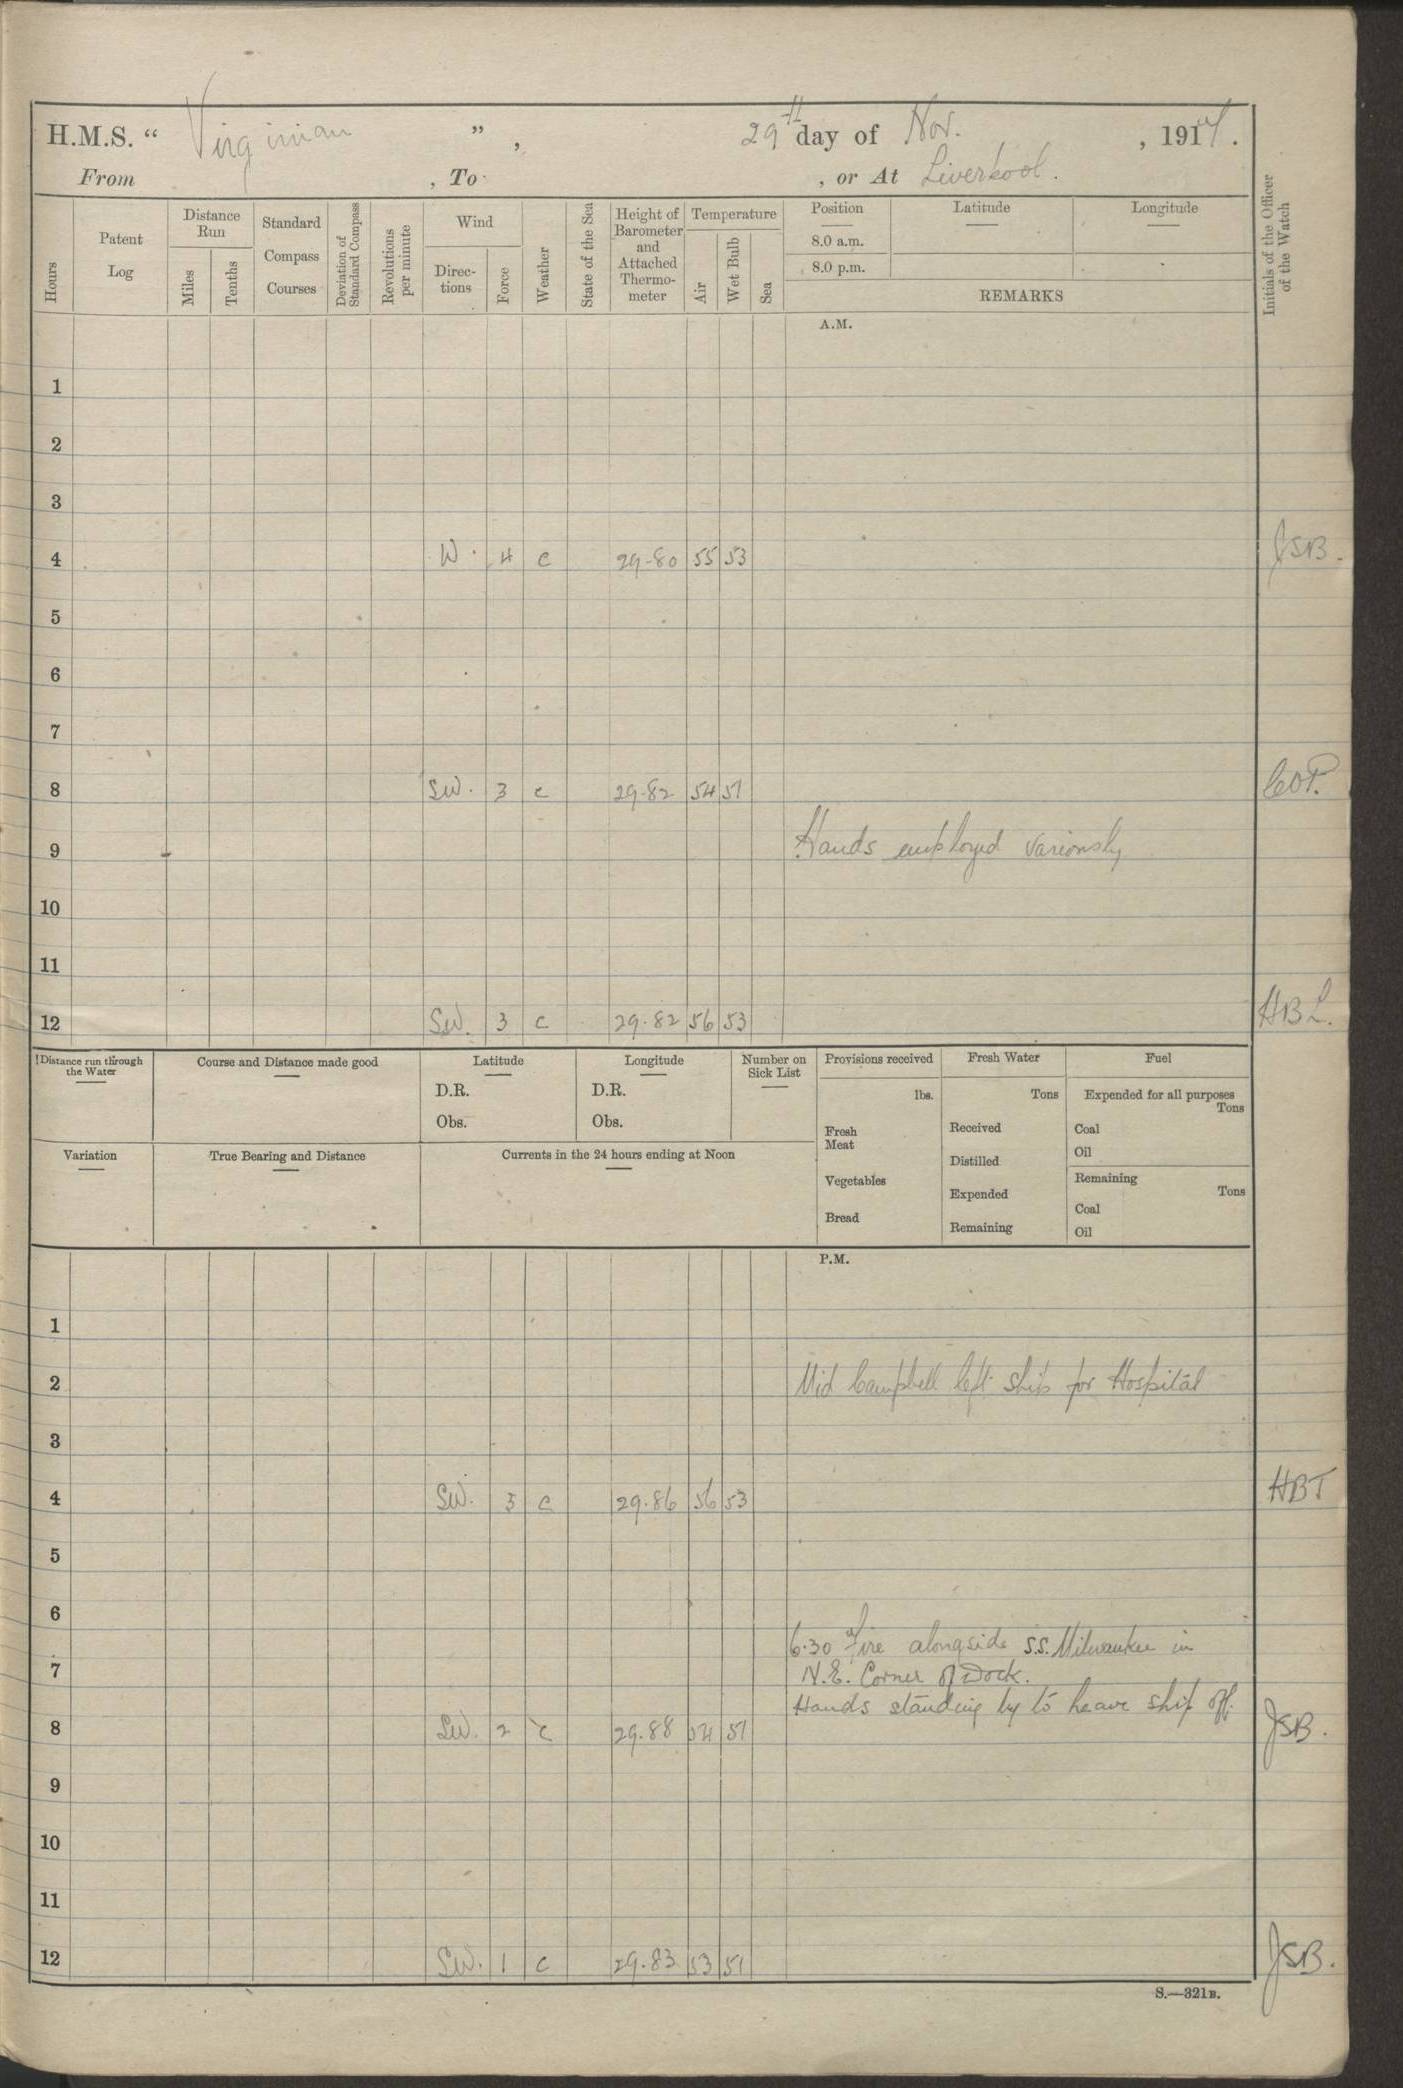 H.M.S. " Virginian ", 29th day of Nov. , 1914.
From , To , or At Liverpool.
Hours
Patent Log
Distance Run
Miles
Tenths
Standard Compass Courses
Deviation of Standard Compass
Revolutions per minute
Wind
Directions
Force
Weather
State of the Sea
Height of Barometer and Attached Thermometer
Temperature
Air
Wet Bulb
Sea
Position
8.0 a.m.
8.0 p.m.
Latitude
Longitude
REMARKS
Initials of the Officer of the Watch
A.M.
1
2
3
4 W. 4 c 29.80 55 53 JSB.
5
6
7
8 SW. 3 c 29.82 54 51
9 Hands employed variously
10
11
12 SW. 3 c 29.82 56 53
Distance run through the Water
Course and Distance made good
Latitude
D.R.
Obs.
Longitude
D.R.
Obs.
Number on Sick List
Provisions received
lbs.
Fresh Meat
Vegetables
Bread
Fresh Water
Tons
Received
Distilled
Expended
Remaining
Fuel
Expended for all purposes
Tons
Coal
Oil
Remaining
Tons
Coal
Oil
Variation
True Bearing and Distance
Currents in the 24 hours ending at Noon
P.M.
1
2 Mid Campbell left ship for Hospital
3
4 SW. 3 c 29.86 56 53 HBT
5
6
6.30 Fire alongside S.S. Milwaukee in
7 N.E. Corner of Dock.
Hands standing by to heave ship off.
8 SW. 2 c 29.88 54 51 JSB.
9
10
11
12 SW. 1 c 29.83 53 51 JSB.
S.—321B.